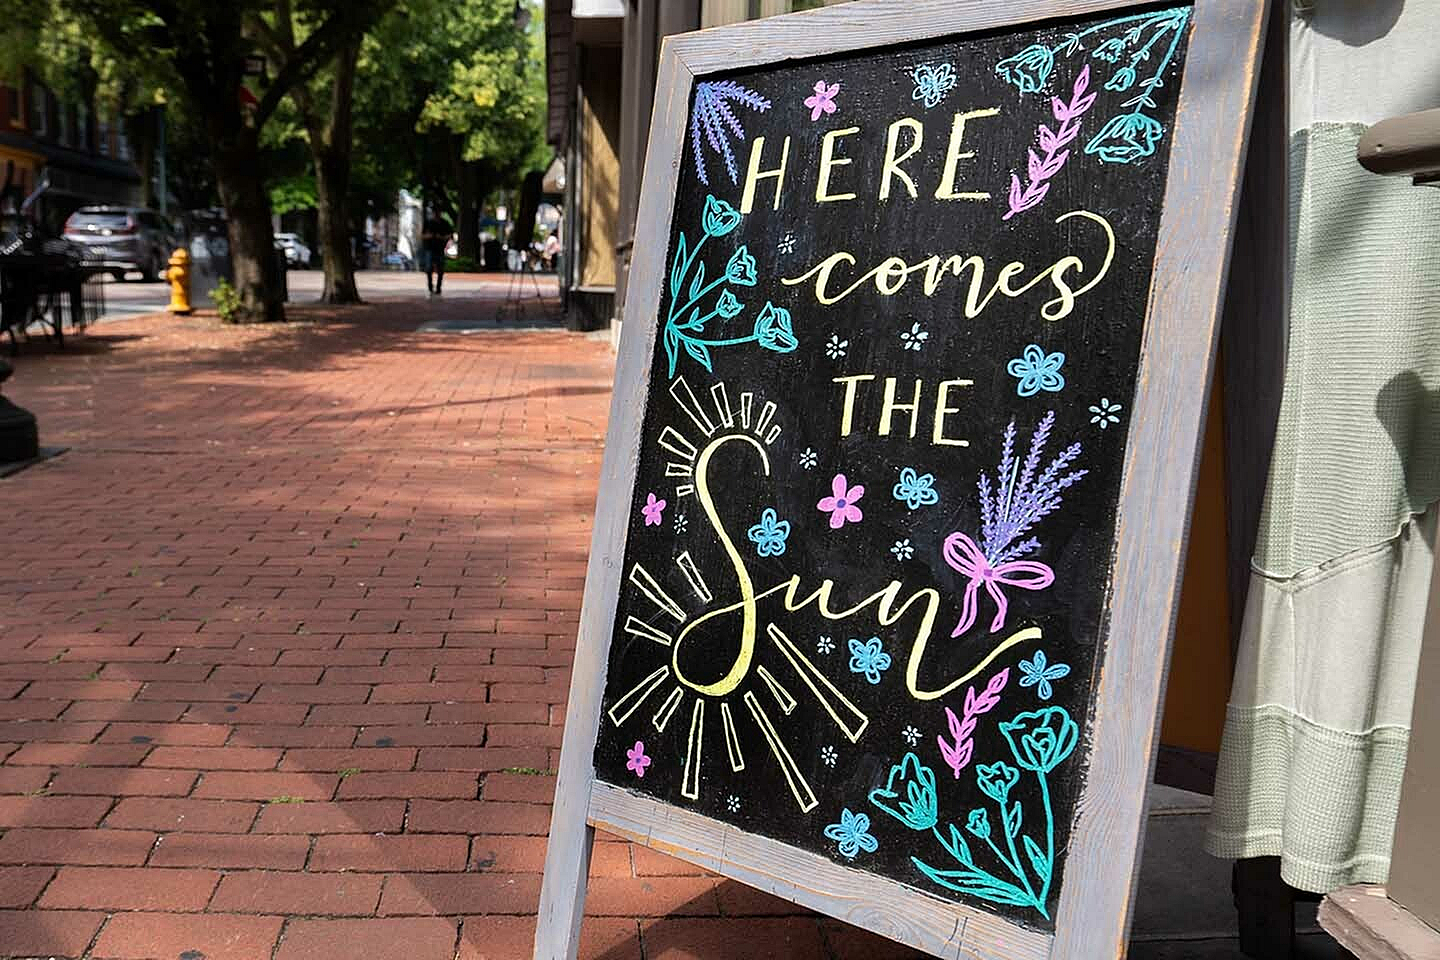 HERE
comes
THE
Sun